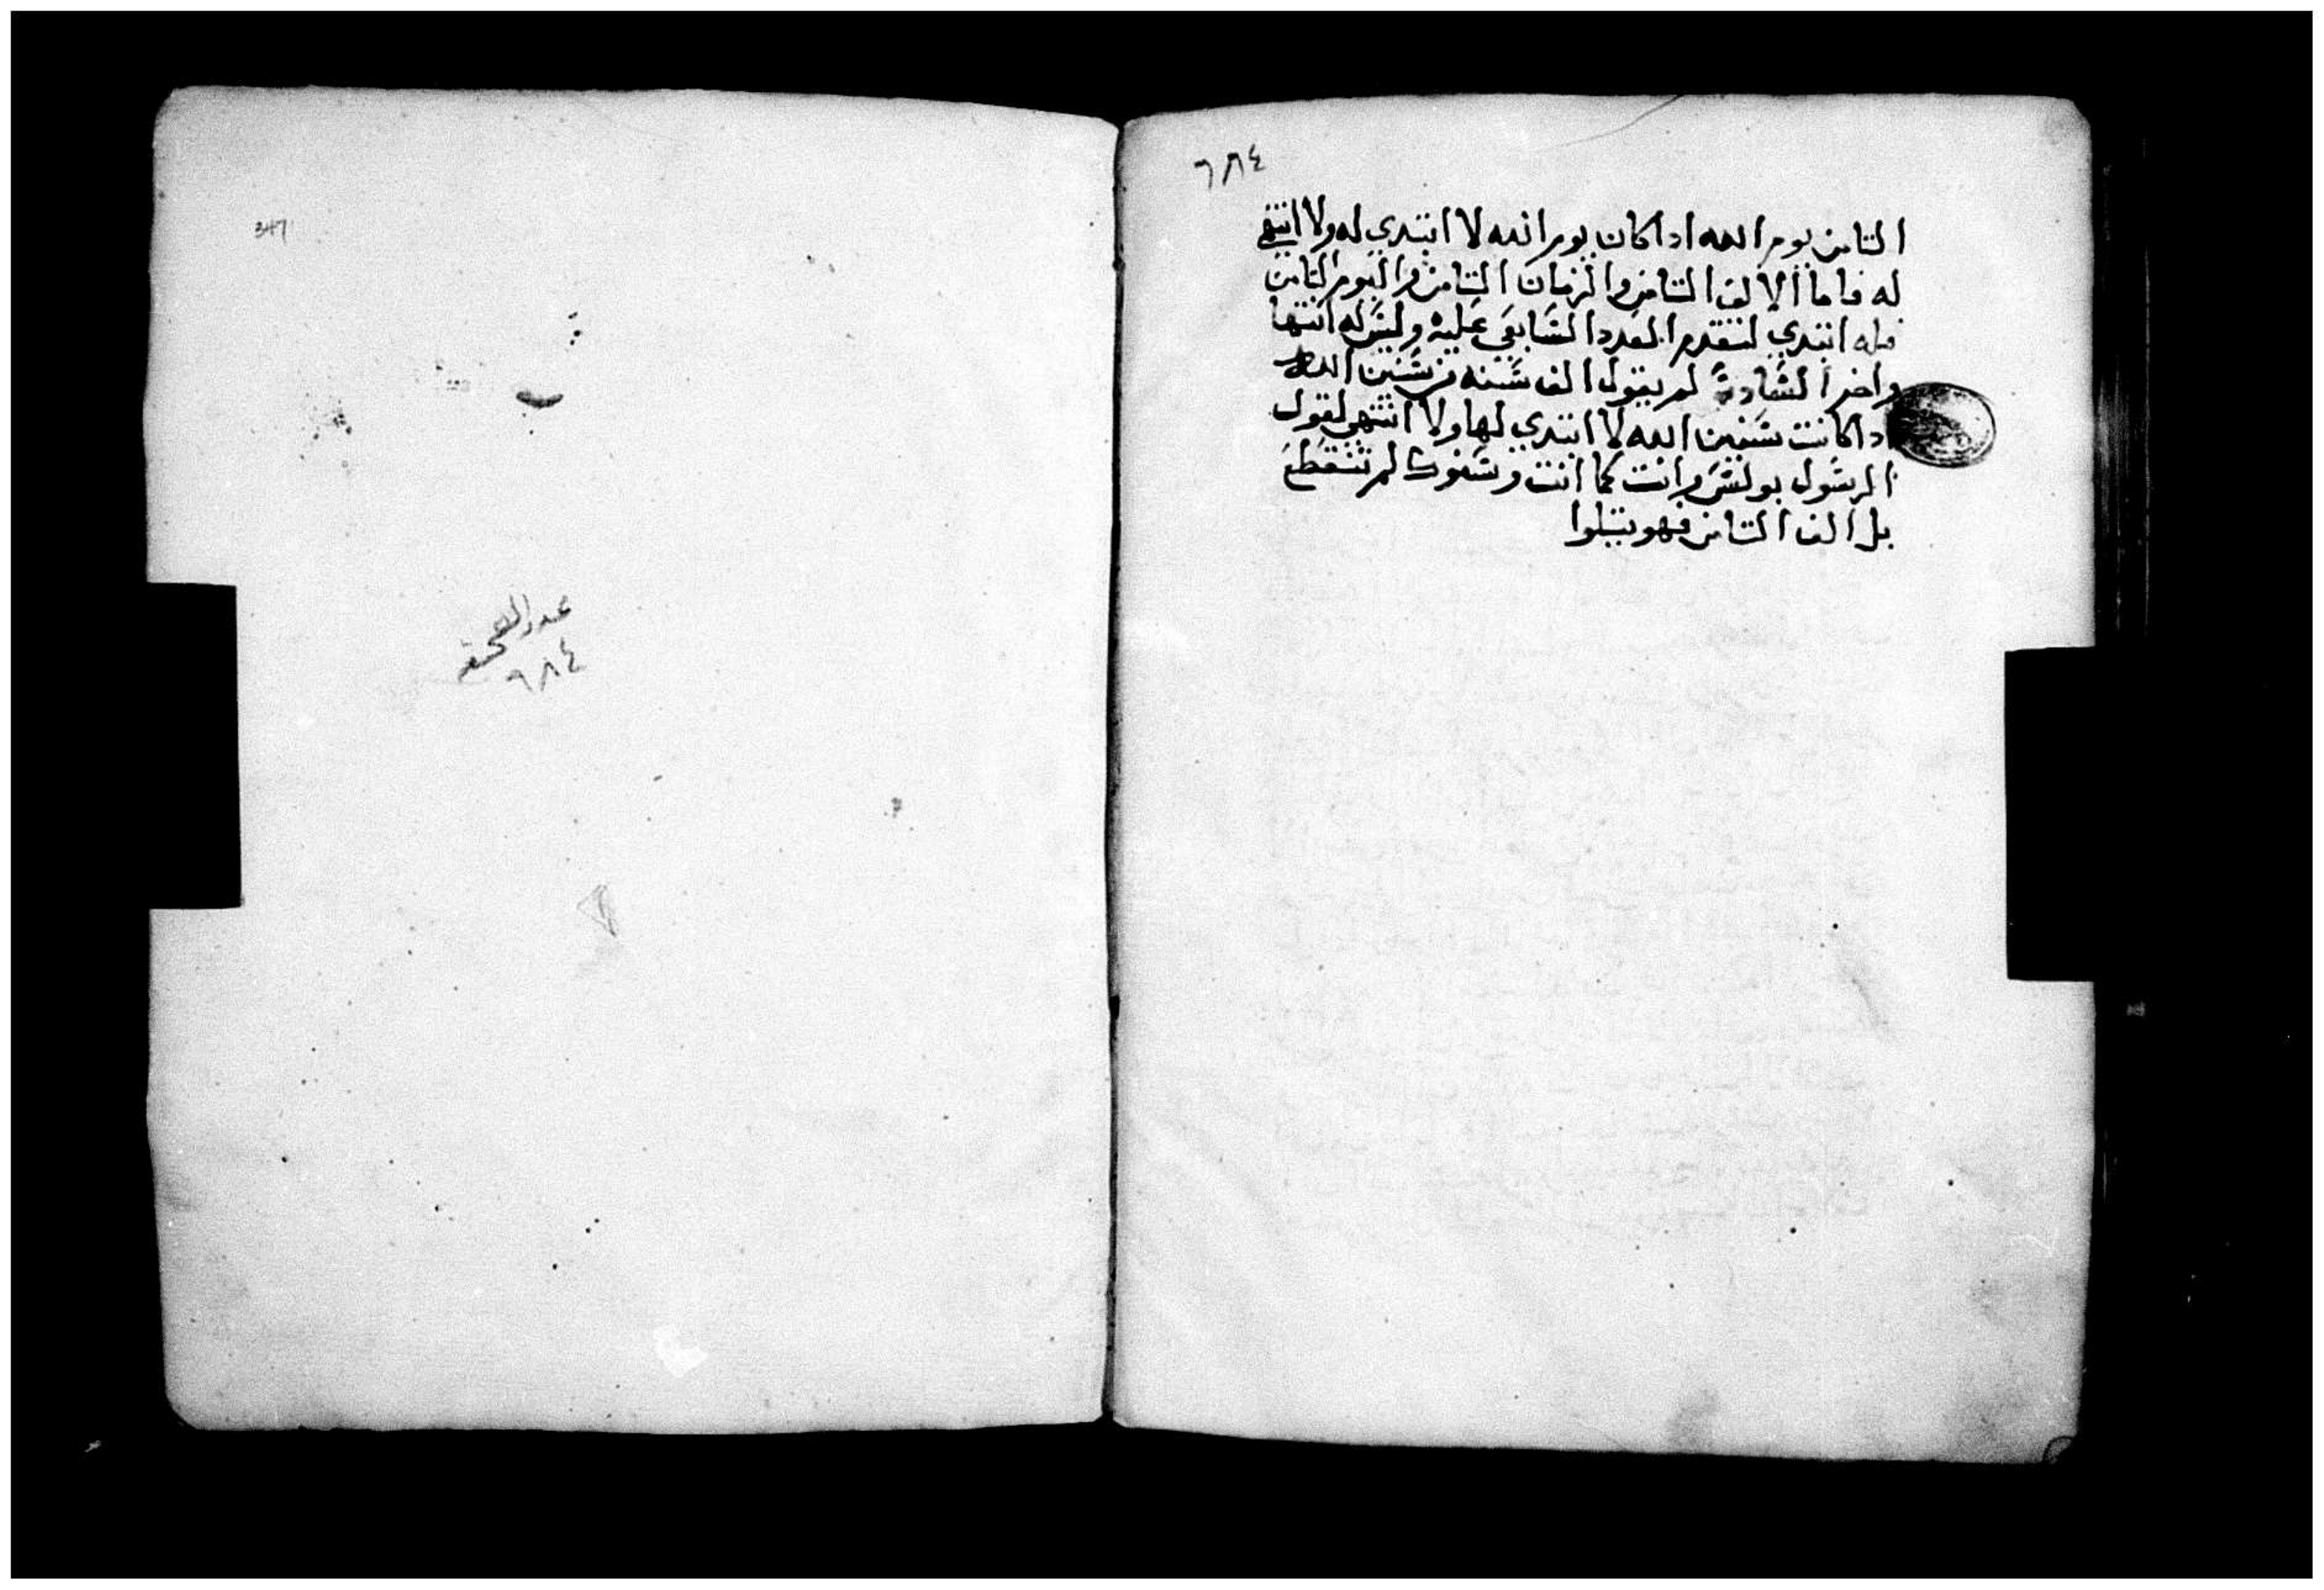 ٦٨٤
الثامن يوم الله اداكان يوم الله لا ابتدي له ولا انتهى
له فاما الالف الثامن والزمان الثامن واليوم الثامن
فله ابتدي لتقدم العدد السابق عليه وليس له انتها
واخر السادس لم يقول الف سنه من سنين الله
اداكانت سنين الله لا ابتدي لها ولا انتهى لقول
الرسول بولس وانت كما انت وسنوك لم تنقطع
بل الف الثامن فهو يتلوا
347
عدد الصحف
٦٨٤